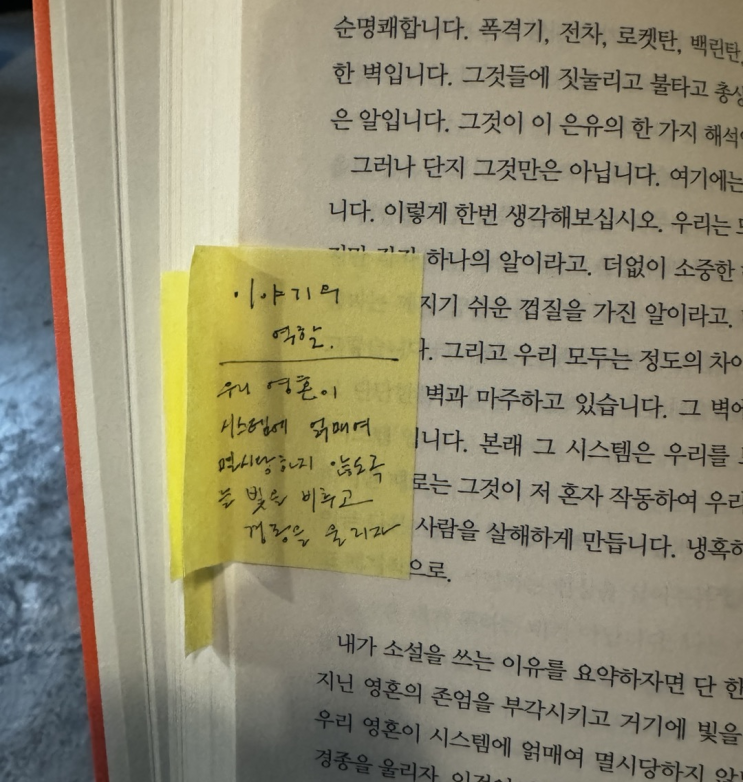 순명쾌합니다. 폭격기, 전차, 로켓탄, 백린탄,
한 벽입니다. 그것들에 짓눌리고 불타고 총상
은 알입니다. 그것이 이 은유의 한 가지 해석
그러나 단지 그것만은 아닙니다. 여기에는
니다. 이렇게 한번 생각해보십시오. 우리는
하나의 알이라고. 더없이 소중한
지기 쉬운 껍질을 가진 알이라고.
다. 그리고 우리 모두는 정도의 차이
벽과 마주하고 있습니다. 그 벽에
입니다. 본래 그 시스템은 우리를
로는 그것이 저 혼자 작동하여 우리
사람을 살해하게 만듭니다. 냉혹하
으로.
내가 소설을 쓰는 이유를 요약하자면 단 한
지닌 영혼의 존엄을 부각시키고 거기에 빛을
우리 영혼이 시스템에 얽매여 멸시당하지 않
경종을 울리자,
이야기의
역할.
우리 영혼이
시스템에 얽매여
멸시당하지 않도록
늘 빛을 비추고
경종을 울리자